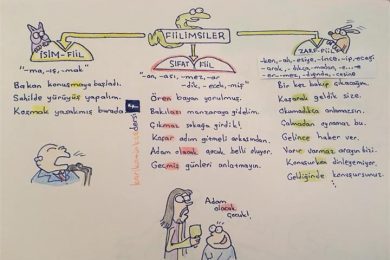 FİİLİMSİLER
İSİM-FİİL
"-ma, -ış, -mak"
Bakan konuşmaya başladı.
Sahilde yürüyüş yapalım.
Kaşmak yasakmış burada
SIFAT FİİL
-an, -ası, -mez, -ar
-dik, -ecek, -miş"
Ören bayan yorulmuş.
Bakılası manzaraya gidelim.
Çıkmaz sokağa girdik!
Koşar adım gitmeli arkasından.
Adam olacak çocuk belli oluyor.
Geçmiş günleri anlatmayın.
ZARF-FİİL
Bir kez bakıp çıkacağım.
Koşarak geldik size.
Okumadıkça anlamazsın.
Çalmadan oynamaz bu.
Gelince haber ver.
Varır varmaz arayın bizi.
Konuşurken dinleyemiyor.
Geldiğinde konuşursunuz.
Adam
olacak
çocuk!